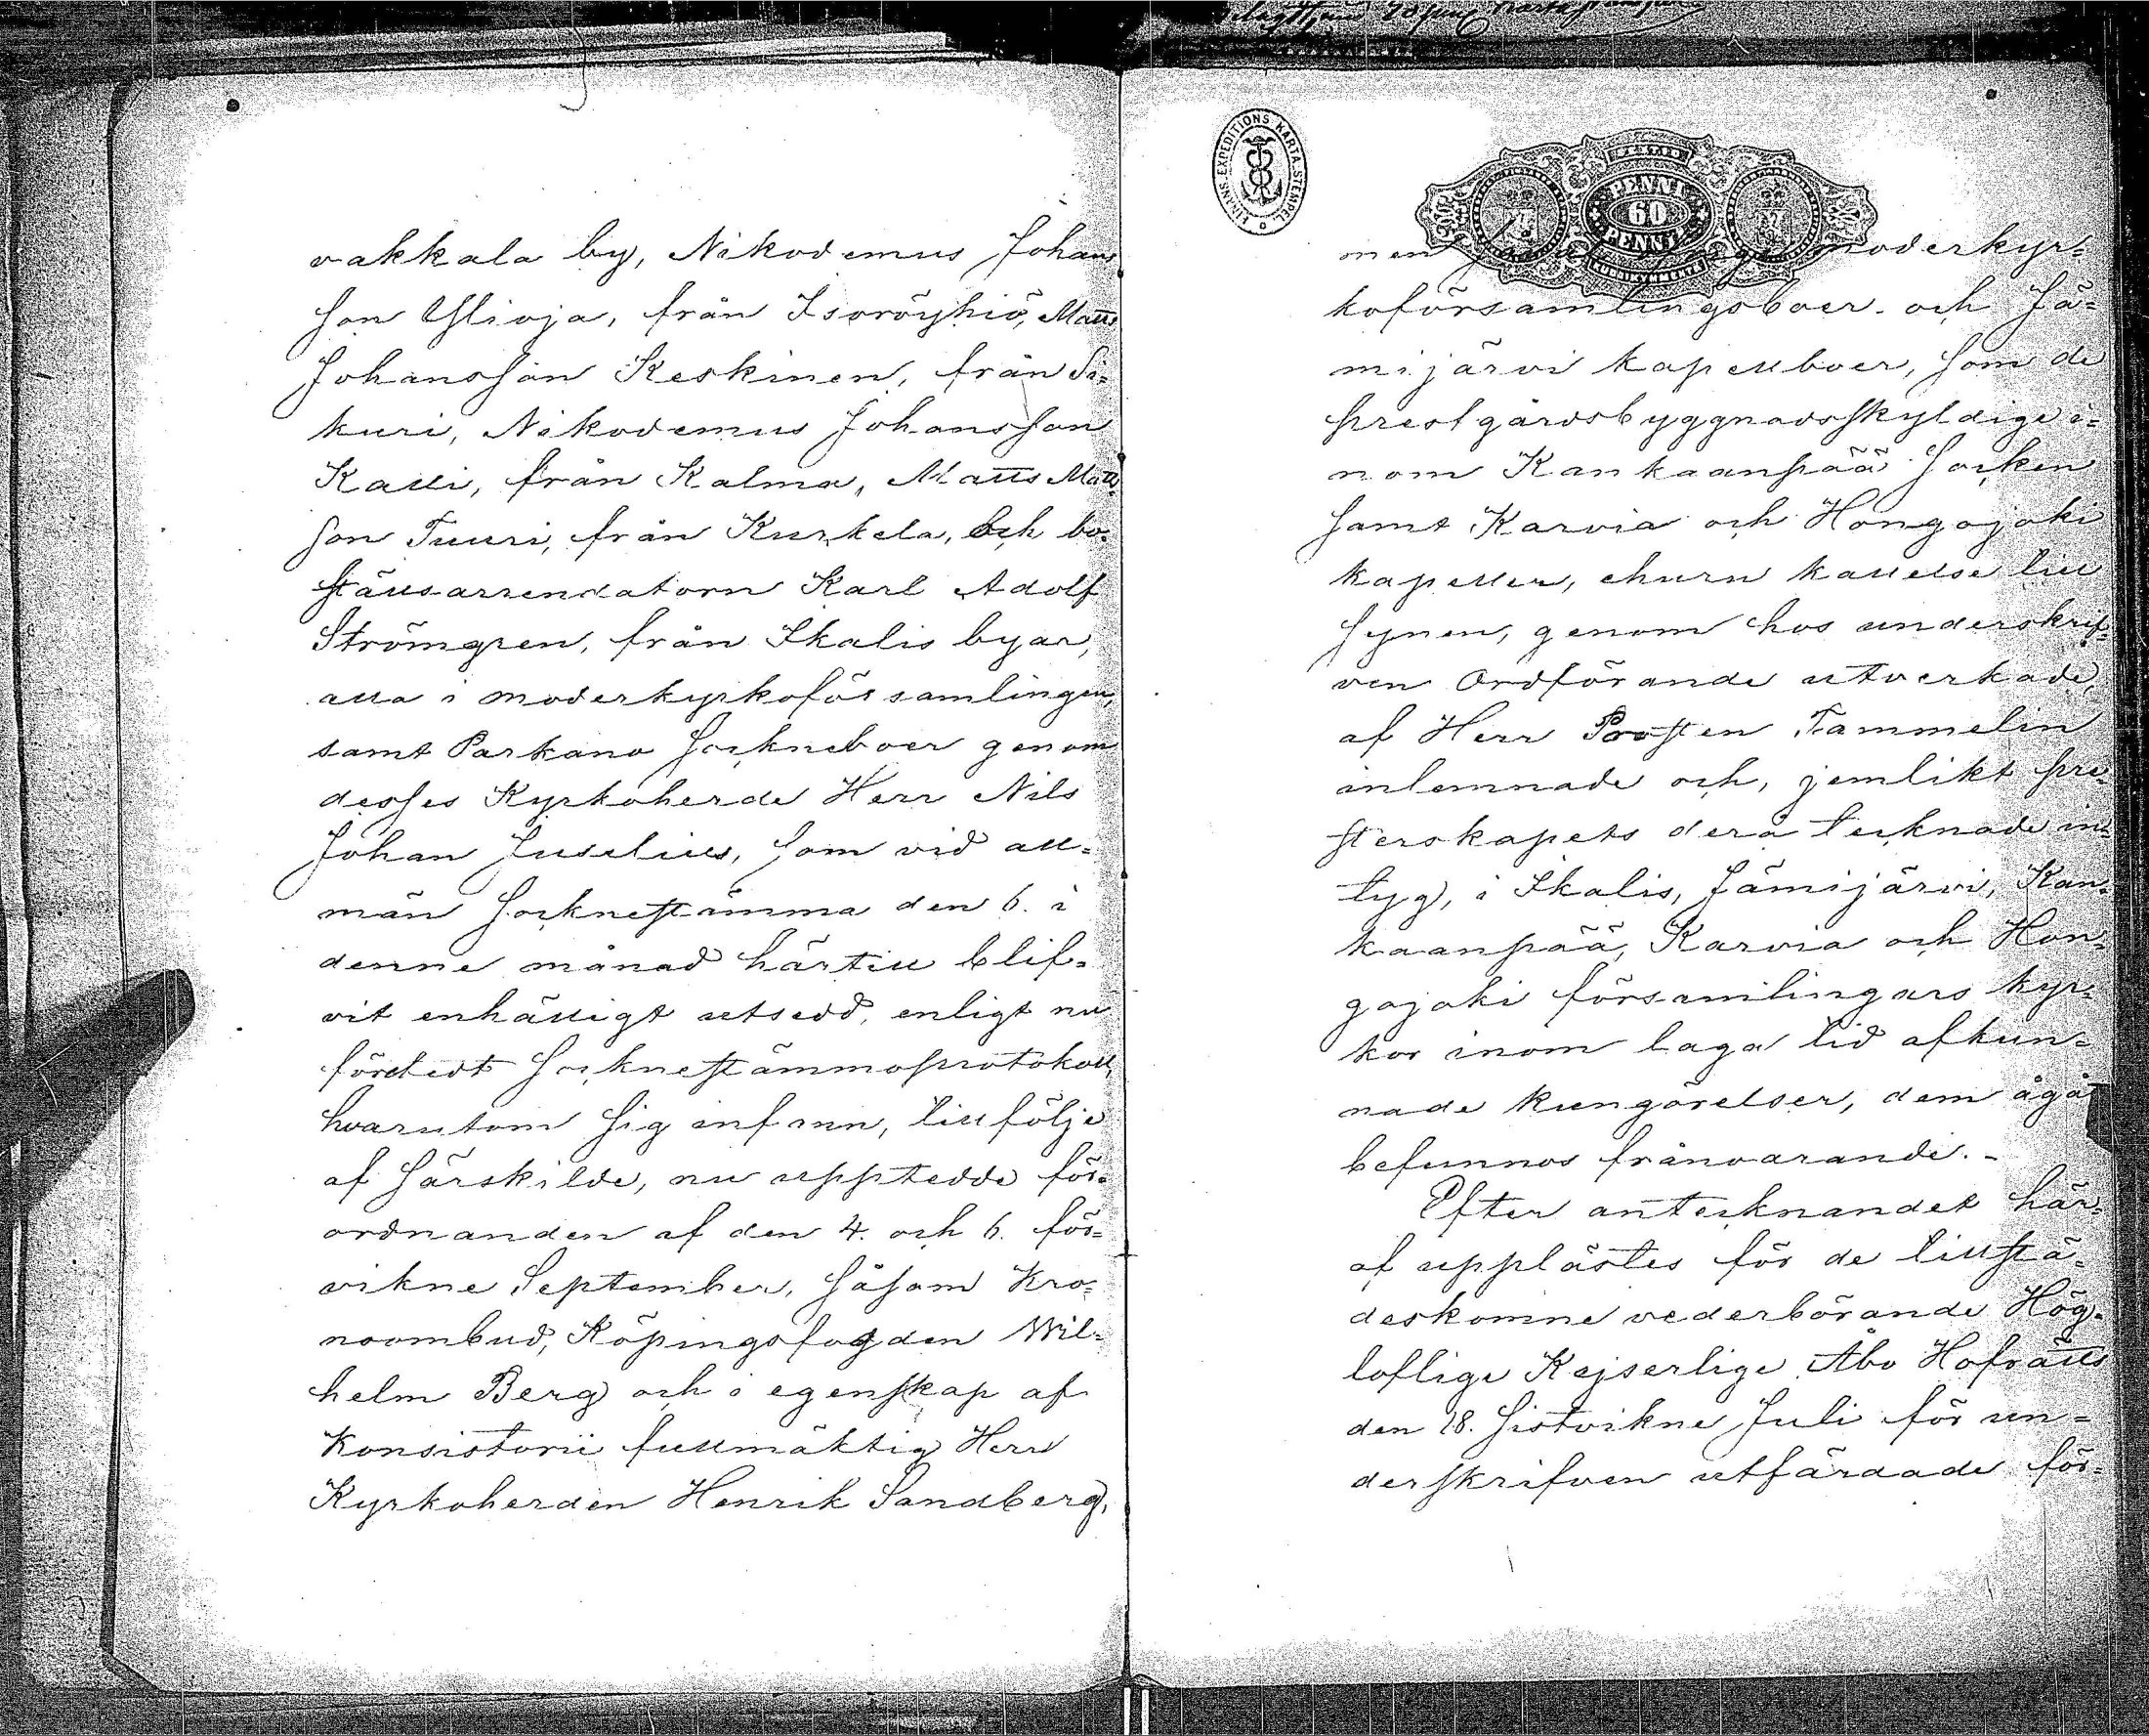 vakkala by, Nikodemus Johans
son Ylioja, från Isoröyhiö, Matts
Johansson Keskinen, från Si=
kuri, Nikodemus Johansson
Kalli, från Kalma, Matts Matts
son Tuuri, från Kurkela, och bo=
ställsarrendatorn Karl Adolf
Strömgren, från Ikalis byar,
alla i moderkyrkoförsamlingen,
samt Parkano sockneboer genom
desses Kyrkoherde Herr Nils
Johan Juselius, som vid all=
män socknestämma den 6. i
denne månad härtill blif=
vit enhälligt utsedd, enligt nu
företedt socknestämmoprotokoll,
hvarutom sig infunn, till följe
af särskilde, nu upptedde för=
ordnanden af den 4. och 6. för=
vikne September, såsom Kro=
noombud, Köpingsfogden Wil=
helm Berg och i egenskap af
Konsistorii fullmäktig Herr
Kyrkoherden Henrik Sandberg,
FINANS. EXPEDITIONS. KARTA. STEMPEL.
PENNI
60
PENNIÄ
men moderkyr=
koförsamlingsboer och Jä=
mijärvi kapellboer, som de
prestgårdsbyggnadsskyldige i=
nom Kankaanpää socken
samt Karvia och Hongojoki
kapeller, ehuru kallelse till
synen, genom hos underskrif=
ven Ordförande utverkade,
af Herr Prosten Tammelin
inlemnade och, jemlikt pre=
sterskapets derå tecknade in=
tyg, i Ikalis, Jämijärvi, Kan=
kaanpää, Karvia och Hon=
gojoki församlingars kyr=
kor inom laga tid afkun=
nade kungörelser, dem ågå
befunnos frånvarande.-
Efter antecknandet här=
af upplästes för de tillstä=
deskomne vederbörande Hög=
loflige Kejserlige Åbo Hofrätts
den 18. sistvikne Juli för un=
derskrifven utfärdade för=